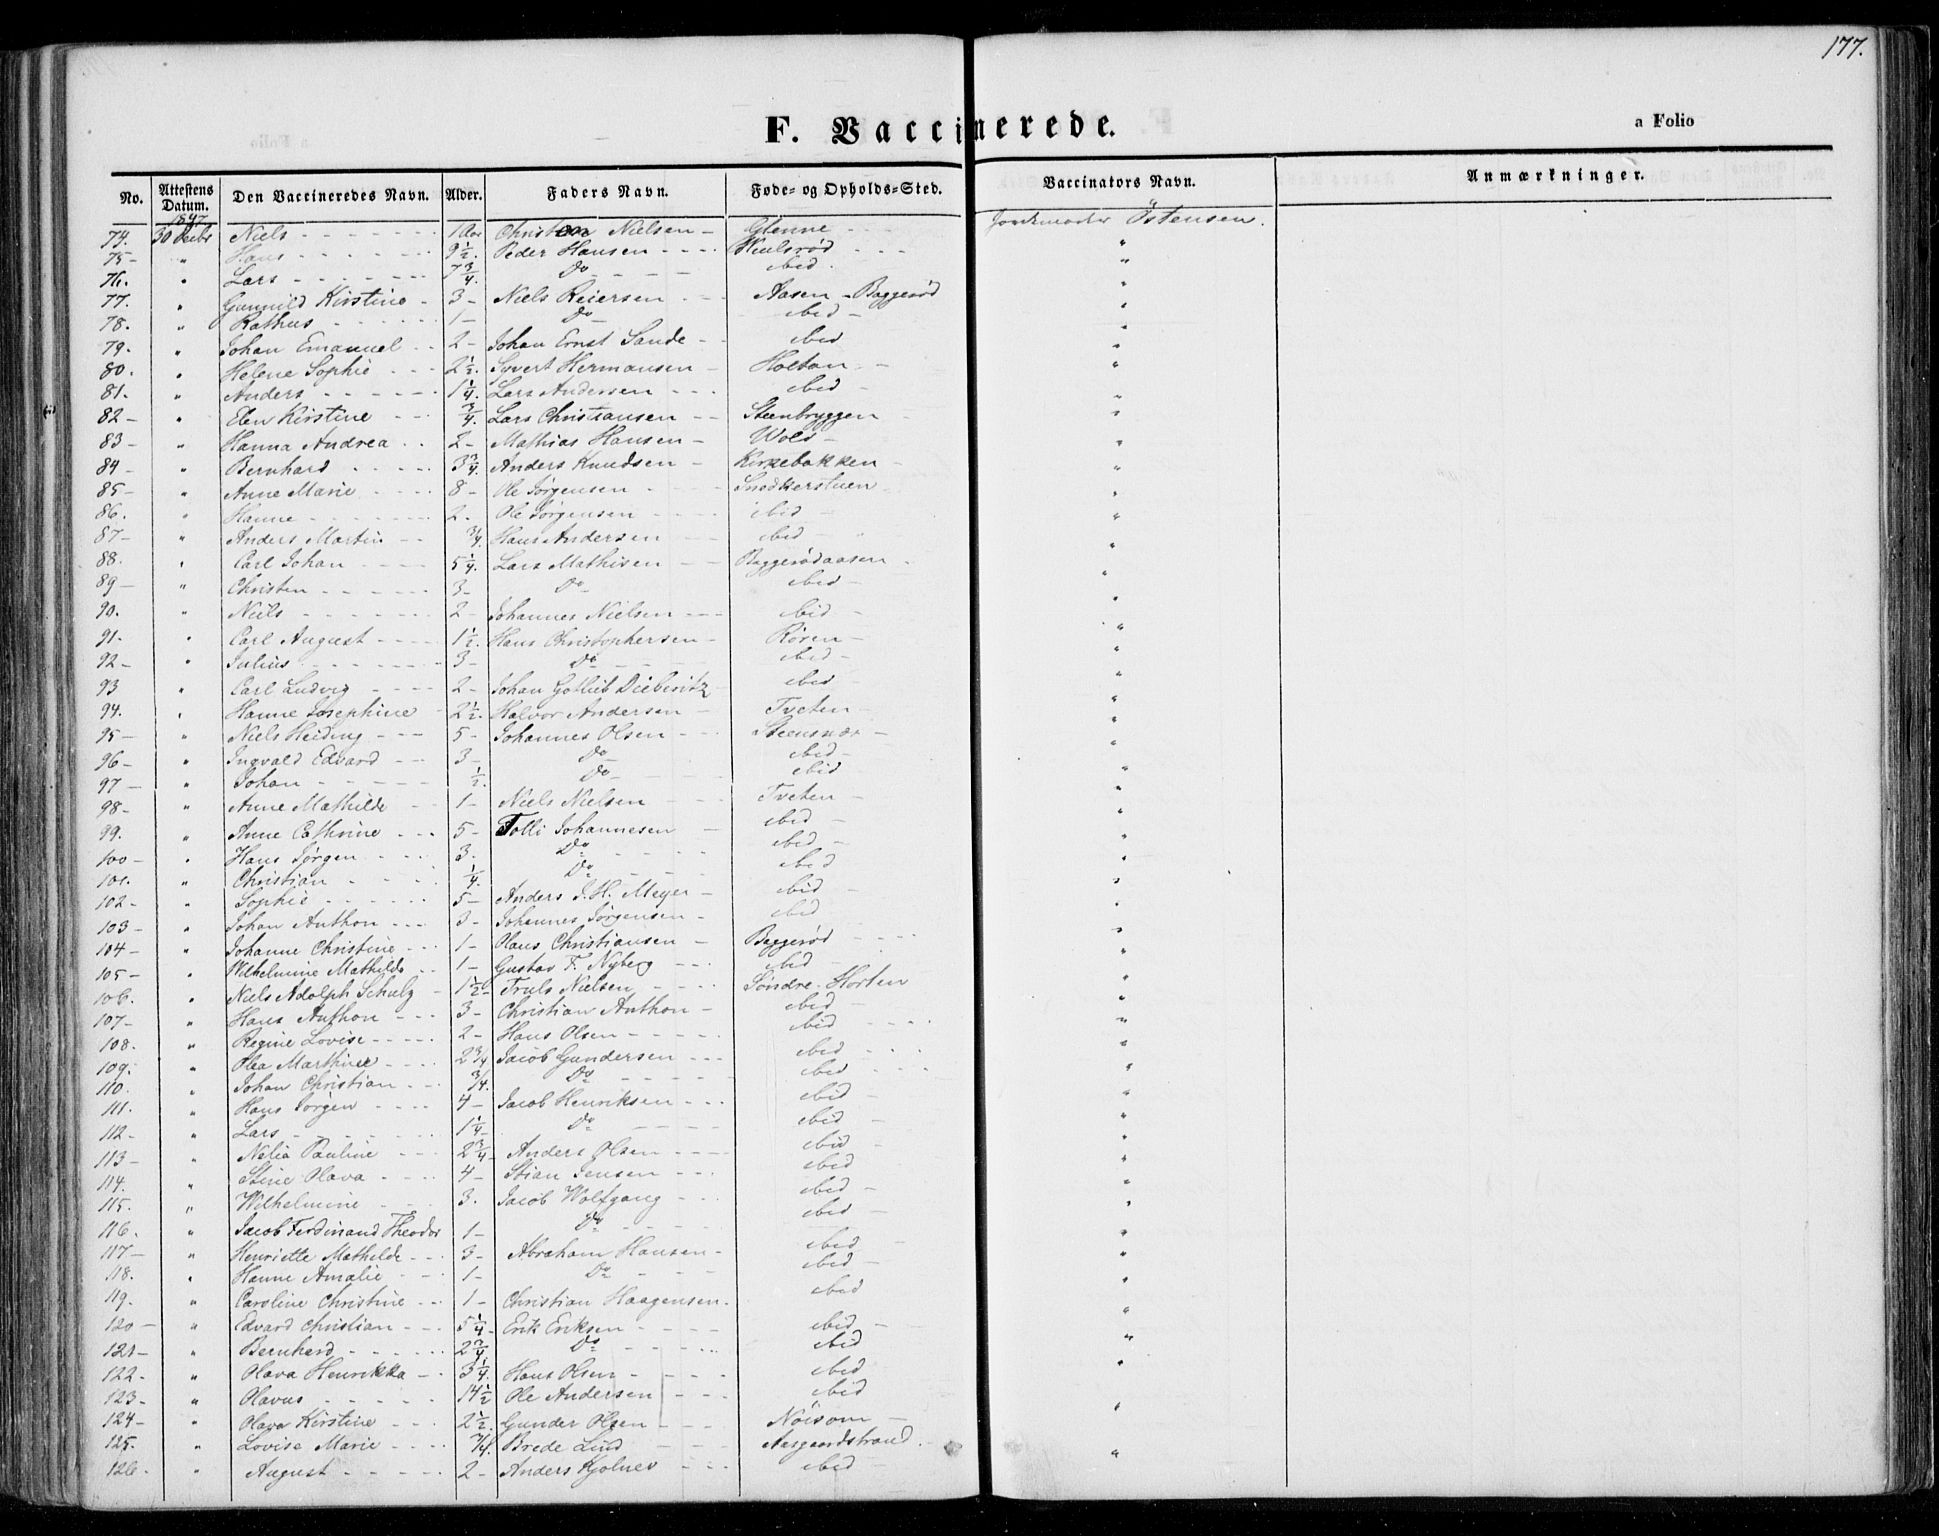 177.
F. Vaccinerede.
a Folio
No. Attestens Datum. Den Vaccineredes Navn. Alder. Faders Navn. Føde- og Opholds-Sted. Vaccinators Navn. Anmærkninger.
1847
74. 30 Decbr Niels - 1 Aar Christen Nielsen - Glenne - Jordemoder Östensen.
75- " Hans - 9 1/2. Peder Hansen - "
76. " Lars - 7 3/4. Do - ibid. "
77. " Gunnild Kirstine - 3- Niels Reiersen - Aasen - Baggerød "
78. " Rathus - 1- Do ibid - "
79. " Johan Emanuel - 2- Johan Ernst Sande - ibid "
80. " Helene Sophie - 2 1/2. Syvert Hermansen - Holtan - "
81. " Anders - 1 1/4. Lars Andersen - ibid - "
82- " Elen Kirstine - 3/4. Lars Christiansen - Steenbryggen - "
83- " Hanna Andrea - 2- Mathias Hansen - Wold - "
84- " Bernhard - 3 3/4. Anders Knudsen - Kirkebakken - "
85- " Anne Marie - 8- Ole Jørgensen - Snedkerstuen - "
86. " Hanne - 2- Ole Jørgensen - ibid - "
87- " Anders Martin - 3/4. Hans Andersen - ibid - "
88. " Carl Johan - 5 1/4. Lars Mathisen - Baggerødaasen - "
89- " Christen - 3- Do - ibid - "
90. " Niels - 2- Johannes Nielsen - ibid - "
91. " Carl August - 1 1/2. Hans Christophersen - Røren - "
92- " Julius - 3- Do - ibid - "
93 " Carl Ludvig - 2- Johan Gotlieb Dieberitz - ibid - "
94. " Hanne Josephine - 2 1/2. Halvor Andersen - Tveten - "
95- " Niels Heiding - 5- Johannes Olsen - Steensnær - "
96- " Ingvald Edvard - 3- Do - ibid - "
97- " Johan - 1/2. Do - ibid - "
98- " Anne Mathilde - 1- Niels Nielsen - Tveten - "
99. " Anne Cathrine - 5- Tolli Johannesen - ibid - "
100- " Hans Jørgen - 3. Do - ibid - "
101. " Christian - 1/4. Do - ibid "
102- " Sophie - 5- Anders J. H. Meyer - ibid - "
103- " Johan Anthon - 3- Johannes Jørgensen - ibid - "
104- " Johanne Christine - 1- Claus Christiansen - Baggerød - "
105- " Wilhelmine Mathilde - 1- Gustav F. Nyberg - ibid - "
106. " Niels Adolph Schulz - 1 1/2- Truls Nielsen - Søndre-Horten "
107- " Hans Anthon - 3- Christian Anthon - ibid - "
108. " Regine Lovise - 2- Hans Olsen - ibid - "
109. " Olea Marthine - 2 3/4 Jacob Gundersen - ibid - "
110. " Johan Christian - 3/4. Do - ibid - "
111. " Hans Jørgen - 4- Jacob Henriksen - ibid - "
112- " Lars - 1 1/4- Do - ibid - "
113- " Nelia Pauline - 2 3/4- Anders Olsen - ibid - "
114. " Stine Olava - 4- Stian Jensen - ibid - "
115. " Wilhelmine - 3. Jacob Wolfgang - ibid - "
116. " Jacob Ferdinand Theodor 1- Do - ibid - "
117- " Henriette Mathilde - 3- Abraham Hansen - ibid - "
118. " Hanne Amalie - 1- Do - ibid - "
119. " Caroline Christine - 1- Christian Haagensen. ibid "
120- " Edvard Christian - 5 1/4- Erik Eriksen - ibid - "
121- " Bernhard - 2 3/4. Do - ibid "
122- " Olava Henrikka - 3 1/4. Hans Olsen - ibid - "
123- " Olavus - 14 1/2 Ole Andersen - ibid -
124- " Olava Kirstine - 2 1/2. Gunder Olsen - Nøisom - "
125. " Lovise Marie - 3/4. Brede Lind - Aasgaardstrand.
126- " August - 2- Anders ibid - "